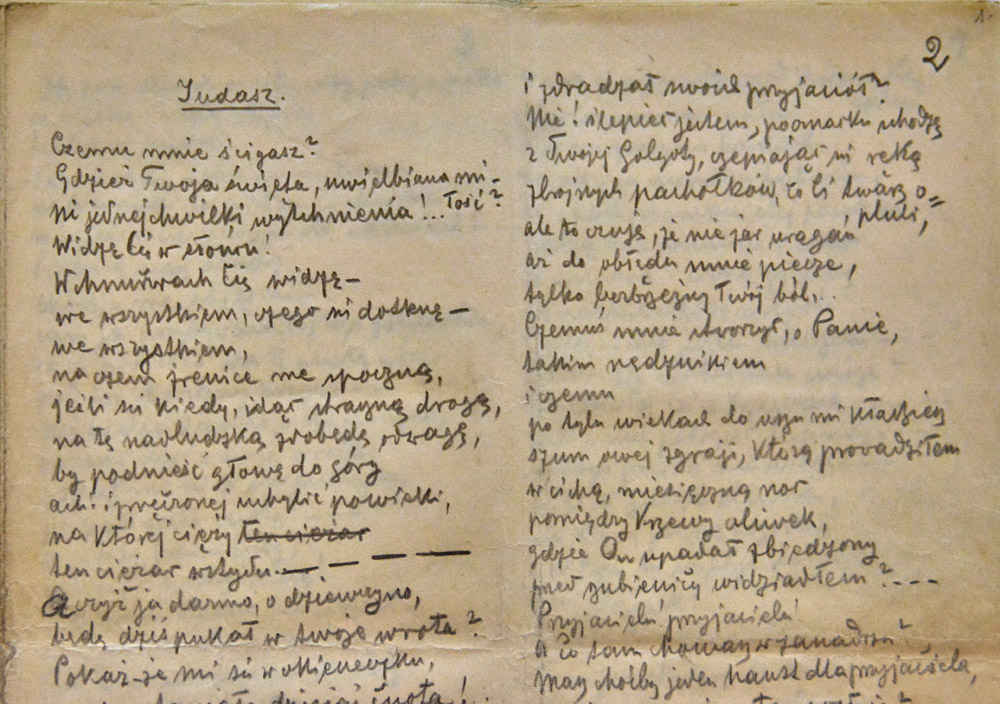 1.
2
Judasz.
Czemu mnie ścigasz?
Gdzież Twoja święta, uwielbiana mi-
łość?
ni jednej chwilki wytchnienia!...
Widzę Cię w słońcu!
W chmurach Cię widzę—
we wszystkiem, czego się dotknę—
we wszystkiem,
na czem źrenice me spoczną,
jeśli się kiedy, idąc straszną drogą,
na tę nadludzką zdobędę odwagę,
by podnieść głowę do góry
ach! i prężonej uchylić powieki,
na której cięży ten ciężar
ten ciężar wstydu.— — — —
A czyż ja darmo, o dziewczyno,
będę dziś pukał w twoje wrota?
Pokaż-że mi się w okieneczku,
dzisiaj cnota!
i zdradzał swoich przyjaciół?
Nie! ślepiec jestem, poomacku schodzę
z Twojej Golgoty, czepiając się ręką
zbrojnych pachołków, co Ci twarz o=
pluli,
ale to czuję, że nie jar urągań
aż do obłędu mnie piecze,
tylko bezbrzeżny Twój ból...
Czemuś mnie stworzył, o Panie,
takim nędznikiem
i czemu
po tylu wiekach do uszu mi kładziesz
szum owej zgraji, którą prowadziłem
w cichą, miesięczną noc
pomiędzy krzewy oliwek,
gdzie On upadał zbiedzony
przed szubienicy widziadłem?----
Przyjacielu! przyjacielu!
a co tam chowasz w zanadrzu?
Masz choćby jeden haust dla przyjaciela,